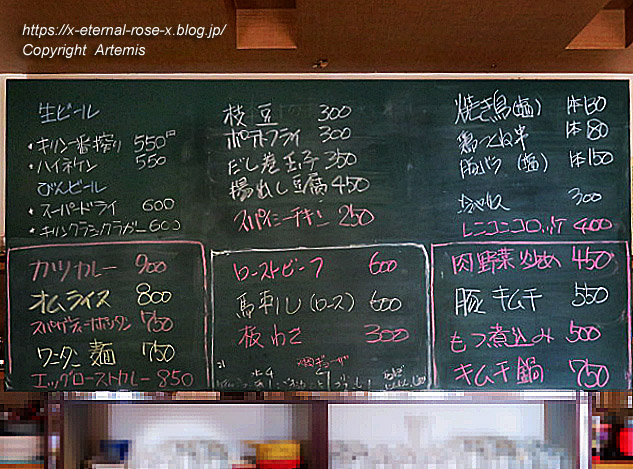 https://x-eternal-rose-x.blog.jp/
Copyright Artemis
生ビール
・キリン一番搾り 550円
・ハイネケン 550
びんビール
・スーパードライ 600
・キリンクラシックラガー 600
枝豆 300
ポテトフライ 300
だし巻玉子 350
揚出し豆腐 450
スパイシーチキン 250
焼き鳥(塩) 1本130
鶏つくね串 1本80
豚バラ(塩) 1本150
300
レンコンコロッケ 400
カツカレー 900
オムライス 800
スパゲティーナポリタン 750
ワンタン麺 750
エッグローストカレー 850
ローストビーフ 600
馬刺し(ロース) 600
板わさ 300
肉野菜炒め 450
豚キムチ 550
もつ煮込み 500
キムチ鍋 750